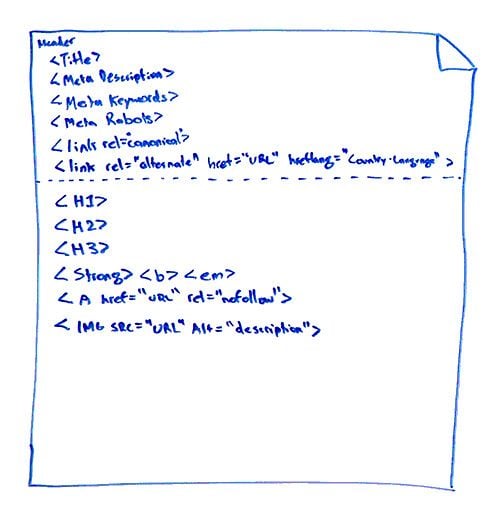 Header
<Title>
<Meta Description>
<Meta Keywords>
<Meta Robots>
<link rel="canonical">
<link rel="alternate" href="URL" hreflang="Country-Language">
<H1>
<H2>
<H3>
<Strong> <b> <em>
<A href="URL" rel="nofollow">
<IMG SRC="URL" Alt="description">